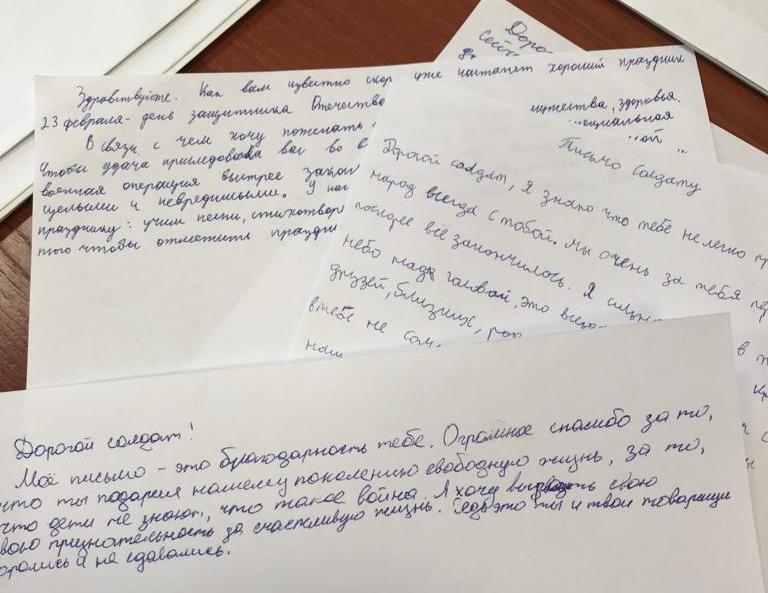 Доро
Здравствуйте. Как вам известно скор уже настанет хороший праздник
23 февраля - день защитника Отечества
В связи с чем хочу пожелать мужества, здоровья.
Чтобы удача приследовала вас во в ...ециальная
военная операция быстрее закон ...ой
целыми и невредимыми. У нас
празднику: учим песни, стихотвор
того чтобы отметить праздни
Письмо Солдату
Дорогой солдат, я знаю что тебе не легко
народ всегда с тобой. Мы очень за тебя пер
поскорее всё закончилось. Я
небо над галовай, это
друзей, близких,
в тебе не сом
наш
Дорогой солдат!
Моё письмо - это благодарность тебе. Огромное спасибо за то,
что ты подарил нашему поколению свободную жизнь, за то,
что дети не знают, что такое война. Я хочу выразить свою
свою признательность за счастливую жизнь. Ведь это ты и твои товарищи
боролись и не сдавались.